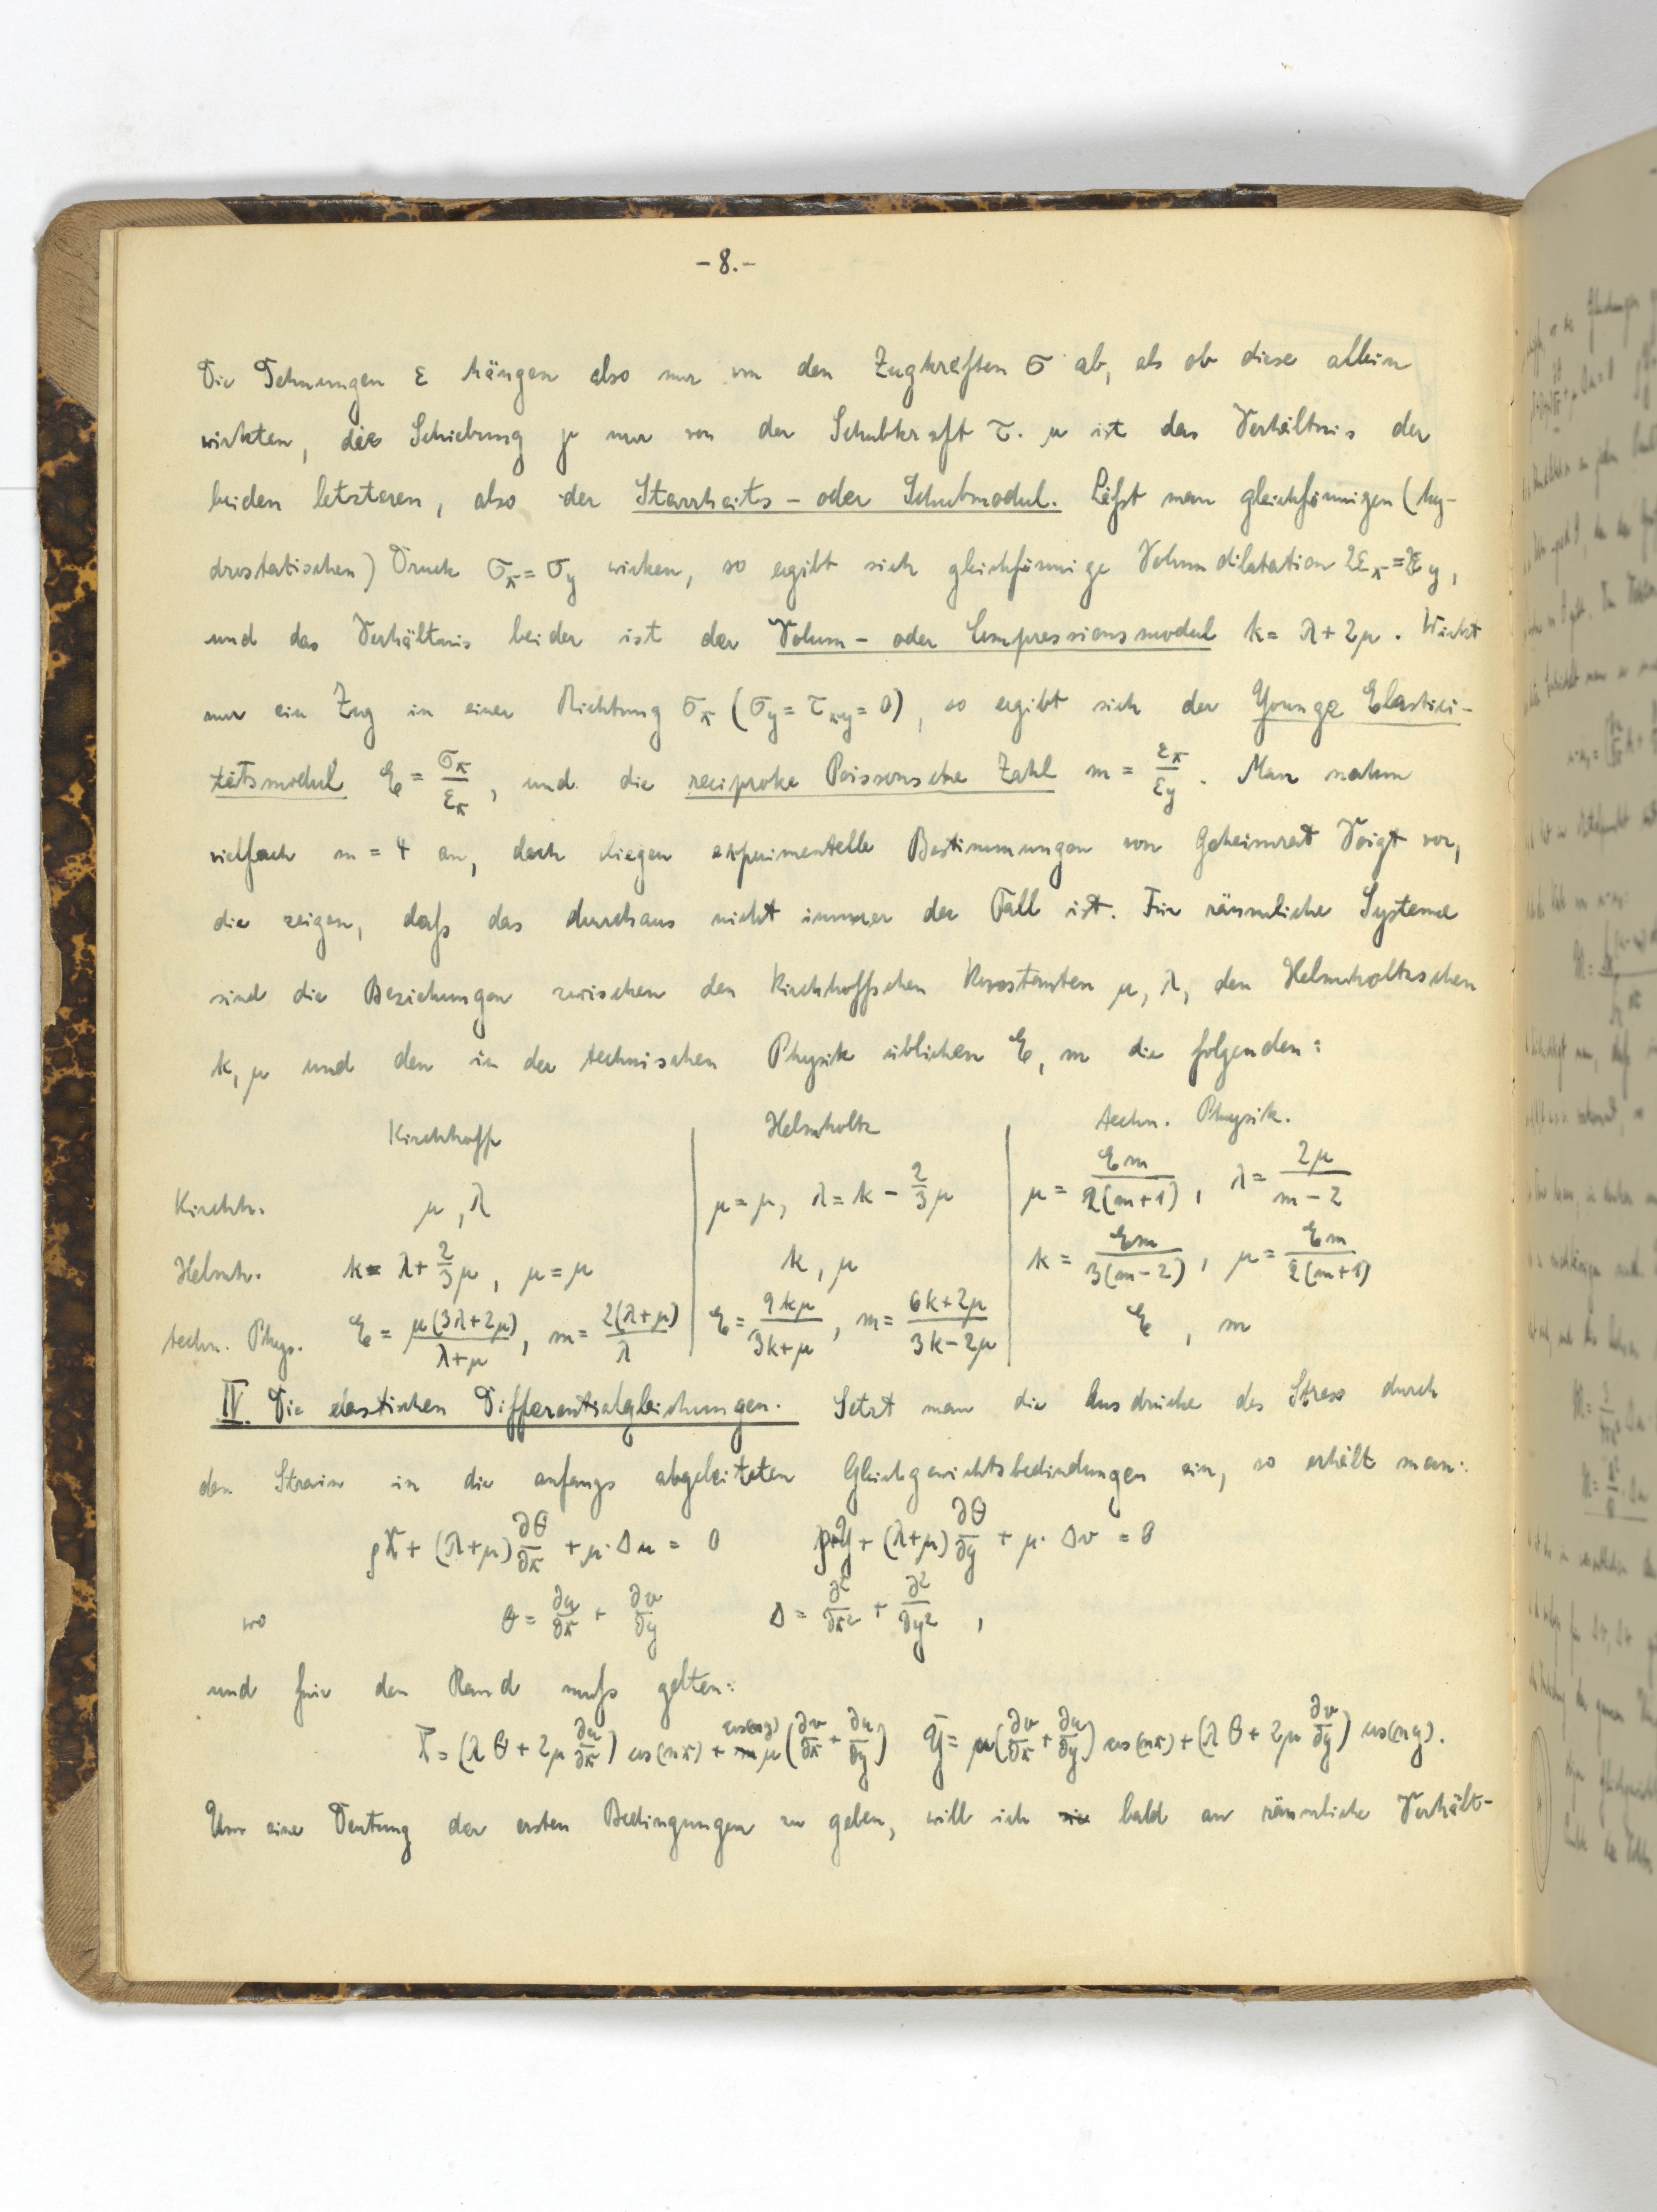 -8.-
Die Dehnungen ε hängen also nur von den Zugkräften σ ab, als ob diese allein
wirkten, die Schiebung γ nur von der Schubkraft τ. μ ist das Verhältnis der
beiden letzteren, also der Starrheits- oder Schubmodul. Läßt man gleichförmigen (hy-
drostatischen) Druck σx = σy wirken, so ergibt sich gleichförmige Volumdilatation 2εx = 2εy,
und das Verhältnis beider ist der Volum- oder Compressionsmodul k = λ + 2μ. Wirkt
nur ein Zug in einer Richtung σx (σy = τxy = 0), so ergibt sich der Younge Elastici-
tätsmodul E = σx/εx, und die reciproke Poissonsche Zahl m = εx/εy. Man nahm
vielfach m = 4 an, doch liegen experimentelle Bestimmungen von Geheimrat Voigt vor,
die zeigen, daß das durchaus nicht immer der Fall ist. Für räumliche Systeme
sind die Beziehungen zwischen den Kirchhoffschen Konstanten μ, λ, den Helmholtzschen
k, μ und den in der technischen Physik üblichen E, m die folgenden:
Kirchhoff Helmholtz techn. Physik.
Kirchh. μ, λ μ = μ, λ = k - 2/3 μ μ = Em/2(m+1), λ = 2μ/m-2
Helmh. k = λ + 2/3 μ, μ = μ k, μ k = Em/3(m-2), μ = Em/2(m+1)
techn. Phys. E = μ(3λ+2μ)/λ+μ, m = 2(λ+μ)/λ E = 9kμ/3k+μ, m = 6k+2μ/3k-2μ E, m
IV. Die elastischen Differentialgleichungen. Setzt man die Ausdrücke des Stress durch
den Strain in die anfangs abgeleiteten Gleichgewichtsbedindungen ein, so erhält man:
ρX + (λ+μ) ∂θ/∂x + μ·Δu = 0 ρY + (λ+μ) ∂θ/∂y + μ·Δv = 0
wo θ = ∂u/∂x + ∂v/∂y Δ = ∂²/∂x² + ∂²/∂y²,
und für den Rand muß gelten:
X̄ = (λθ + 2μ ∂u/∂x) cos(nx) + cos(ny) μ(∂v/∂x + ∂u/∂y) Ȳ = μ(∂v/∂x + ∂u/∂y) cos(nx) + (λθ + 2μ ∂v/∂y) cos(ny).
Um eine Deutung der ersten Bedingungen zu geben, will ich sie bald an räumliche Verhält-